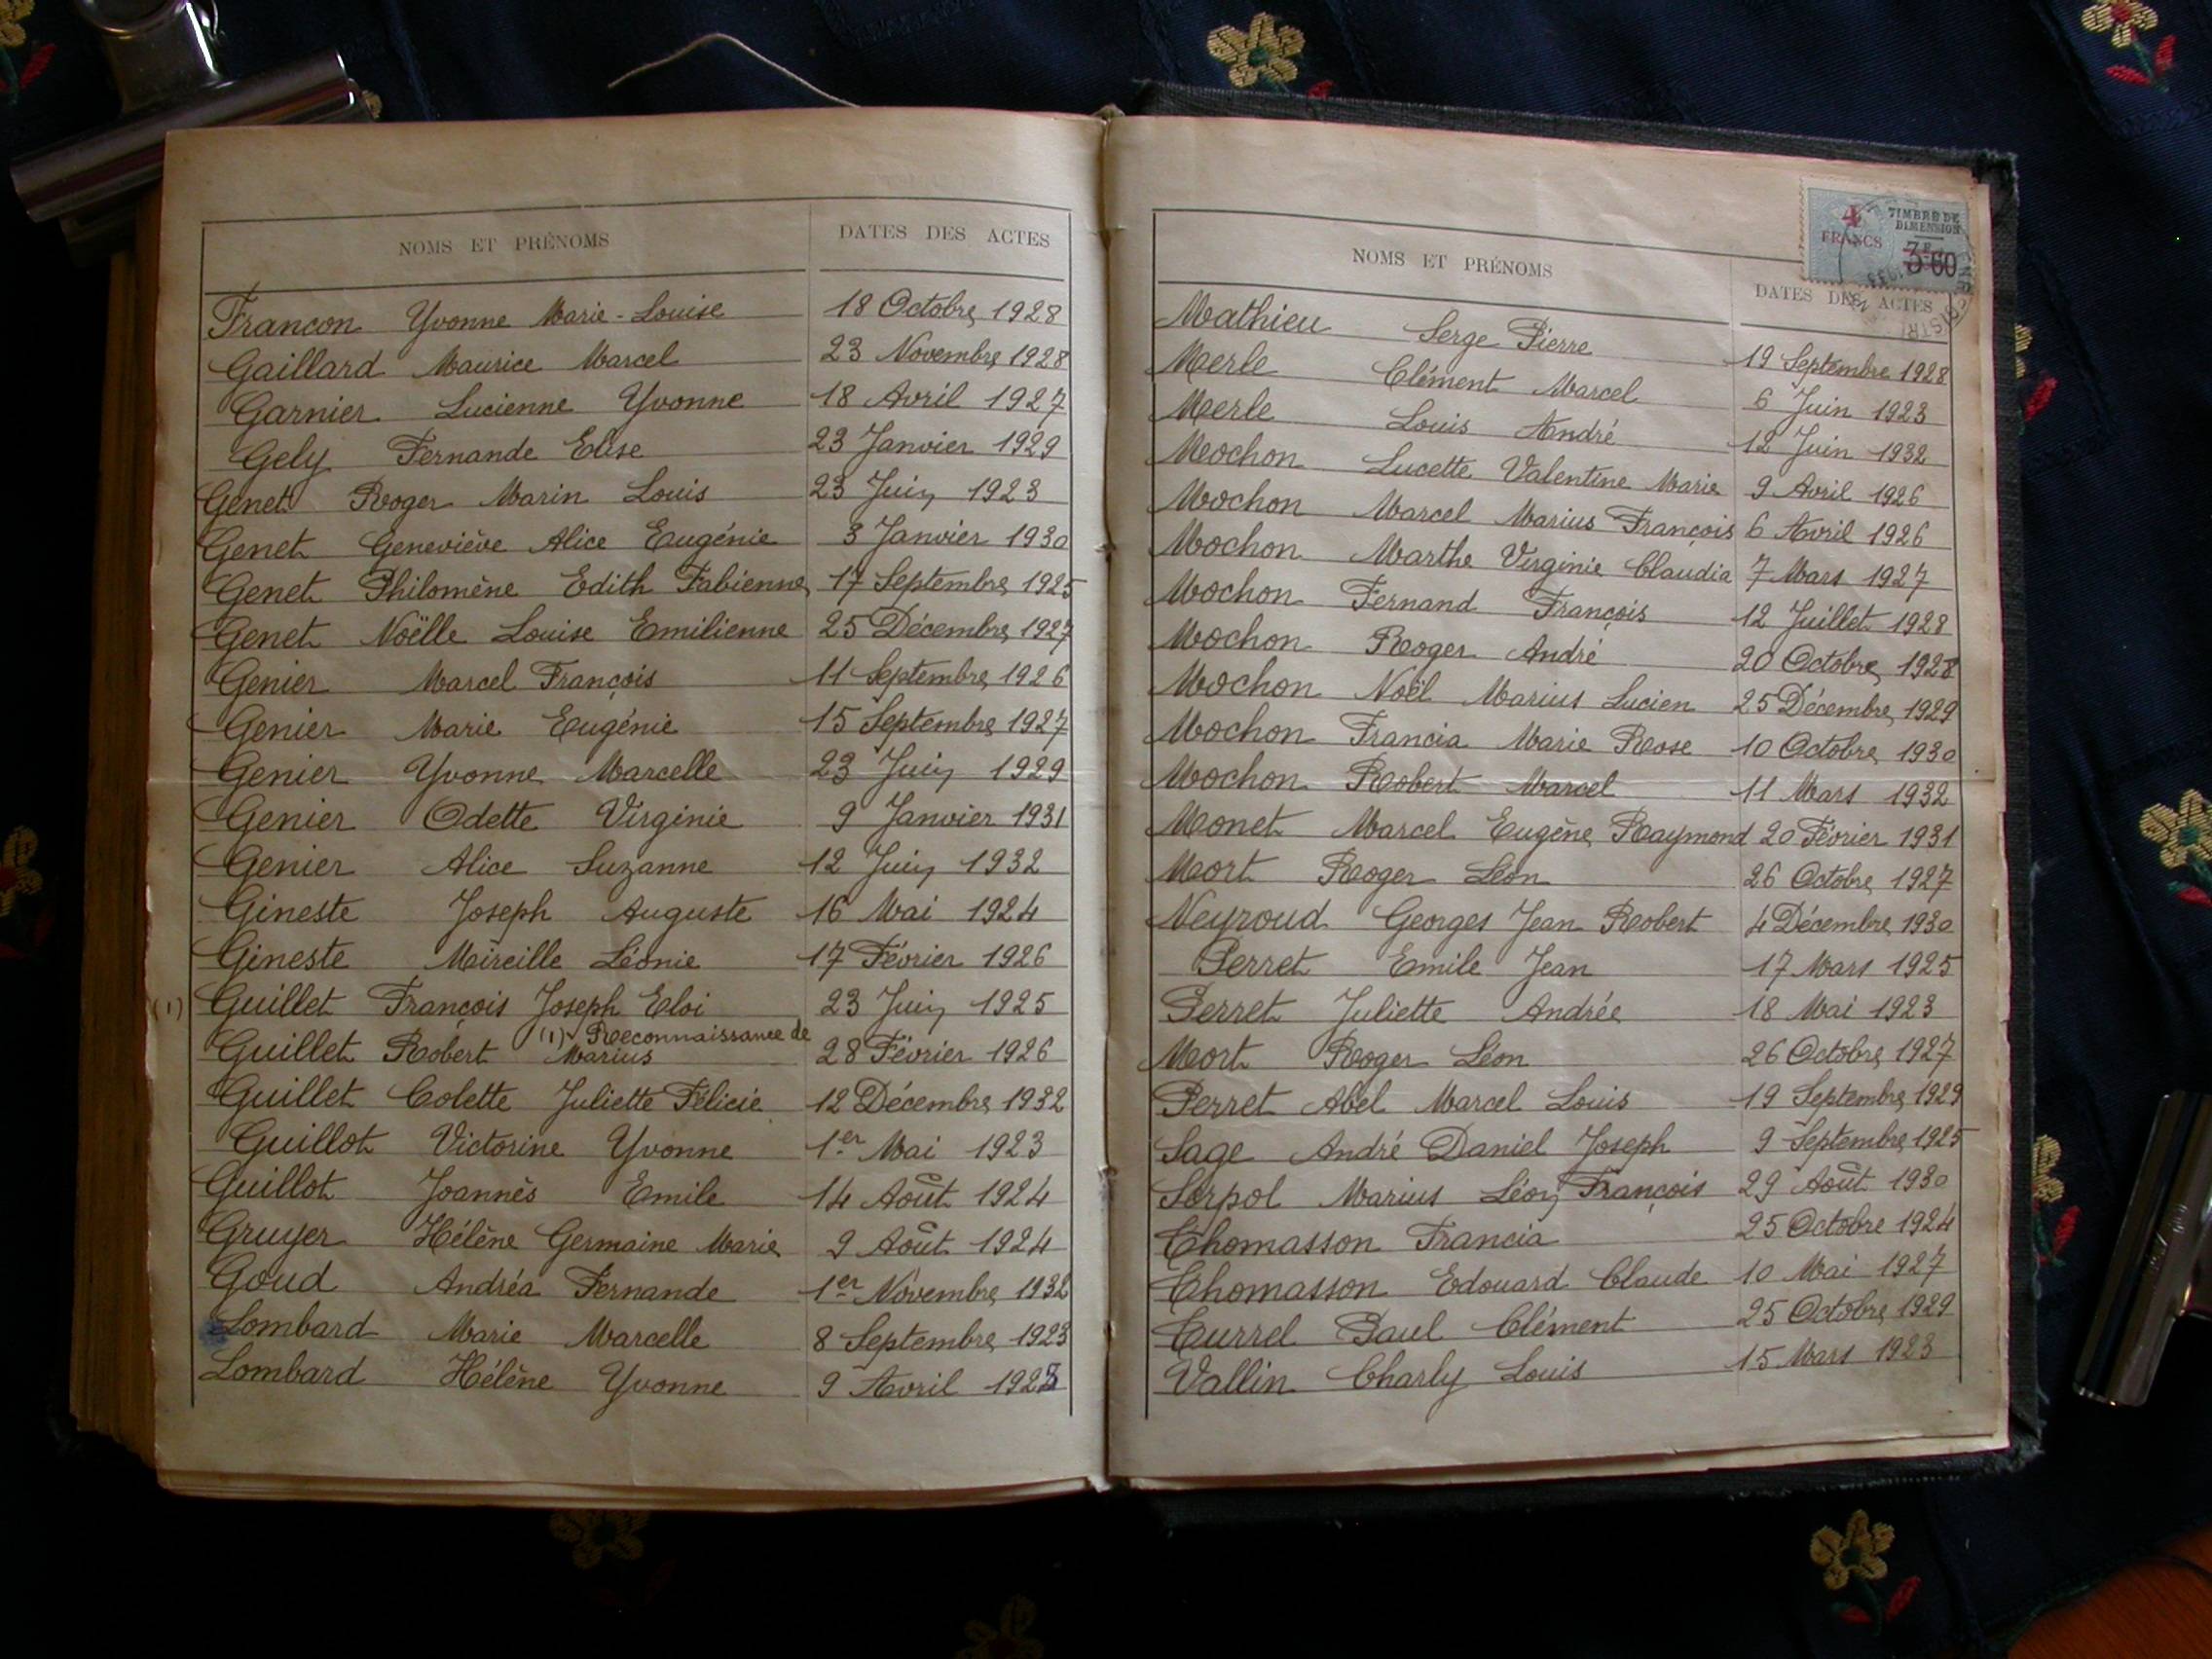 NOMS ET PRÉNOMS DATES DES ACTES
Francon Yvonne Marie-Louise 18 Octobre 1928
Gaillard Maurice Marcel 23 Novembre 1928
Garnier Lucienne Yvonne 18 Avril 1927
Gely Fernande Elise 23 Janvier 1929
Genet Roger Marin Louis 23 Juin 1923
Genet Geneviève Alice Eugénie 3 Janvier 1930
Genet Philomène Edith Fabienne 17 Septembre 1925
Genet Noëlle Louise Emilienne 25 Décembre 1927
Genier Marcel François 11 Septembre 1926
Genier Marie Eugénie 15 Septembre 1927
Genier Yvonne Marcelle 23 Juin 1929
Genier Odette Virginie 9 Janvier 1931
Genier Alice Suzanne 12 Juin 1932
Gineste Joseph Auguste 16 Mai 1924
Gineste Mireille Léonie 17 Février 1926
(1) Guillet François Joseph Eloi 23 Juin 1925
(1) Reconnaissance de
Guillet Robert Marius 28 Février 1926
Guillet Colette Juliette Félicie 12 Décembre 1932
Guillot Victorine Yvonne 1er Mai 1923
Guillot Joannès Emile 14 Août 1924
Gruyer Hélène Germaine Marie 9 Août 1924
Goud Andréa Fernande 1er Novembre 1932
Lombard Marie Marcelle 8 Septembre 1923
Lombard Hélène Yvonne 9 Avril 1928
4 FRANCS
TIMBRE DE
DIMENSION
3F60
NOMS ET PRÉNOMS DATES DES ACTES
Mathieu Serge Pierre 19 Septembre 1928
Merle Clément Marcel 6 Juin 1923
Merle Louis André 12 Juin 1932
Mochon Lucette Valentine Marie 9 Avril 1926
Mochon Marcel Marius François 6 Avril 1926
Mochon Marthe Virginie Claudia 7 Mars 1927
Mochon Fernand François 12 Juillet 1928
Mochon Roger André 20 Octobre 1928
Mochon Noël Marius Lucien 25 Décembre 1929
Mochon Francia Marie Rose 10 Octobre 1930
Mochon Robert Marcel 11 Mars 1932
Monet Marcel Eugène Raymond 20 Février 1931
Mort Roger Léon 26 Octobre 1927
Neyroud Georges Jean Robert 4 Décembre 1930
Perret Emile Jean 17 Mars 1925
Perret Juliette Andrée 18 Mai 1923
Mort Roger Léon 26 Octobre 1927
Perret Abel Marcel Louis 19 Septembre 1929
Sage André Daniel Joseph 9 Septembre 1925
Serpol Marius Léon François 29 Août 1930
Thomasson Francia 25 Octobre 1924
Thomasson Edouard Claude 10 Mai 1927
Turrel Paul Clément 25 Octobre 1929
Vallin Charly Louis 15 Mars 1923